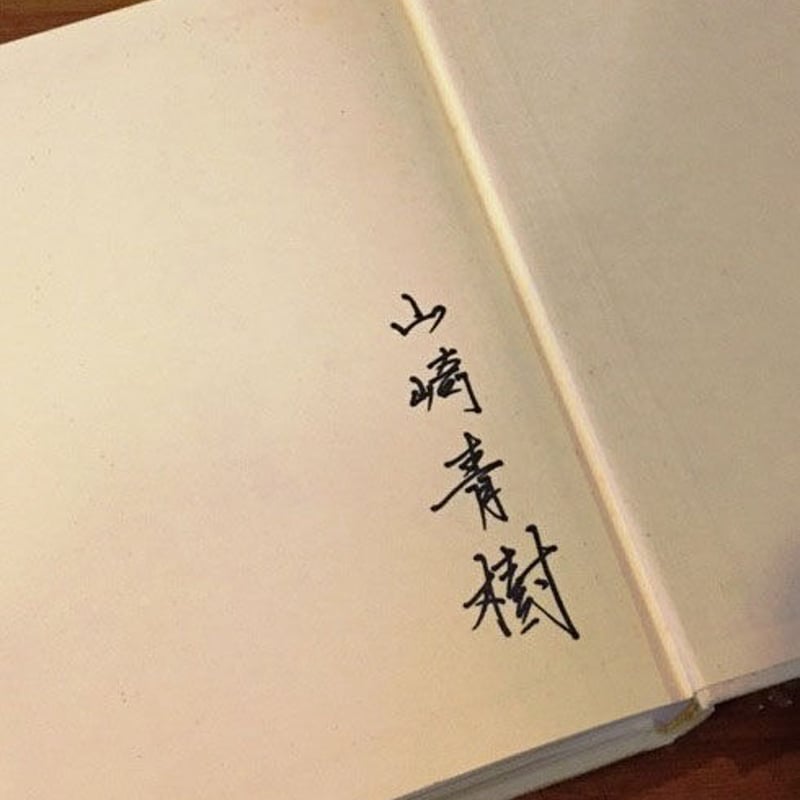 山崎青樹